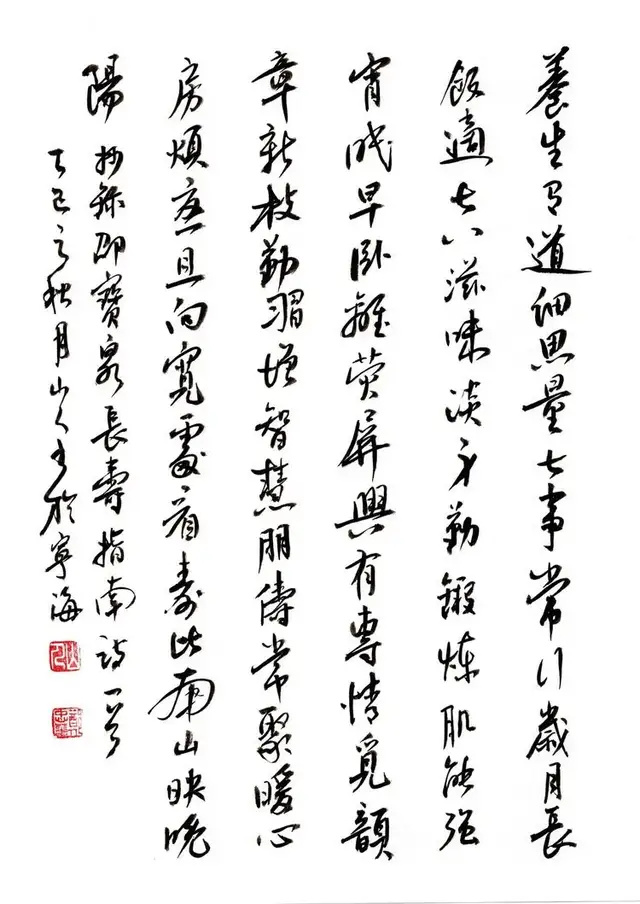 養生有道細思量七事常行歲月長
飯適七八滋味淡身勤鍛煉肌能強
宵早卧離荧屏興有專情覓韻
章新枝勤習增智慧朋儔常聚暖心
房煩憂且向寬處看壽比南山映晓
陽 抄錄邵寶泉長壽指南詩一首
乙巳之秋月山人书於寧海